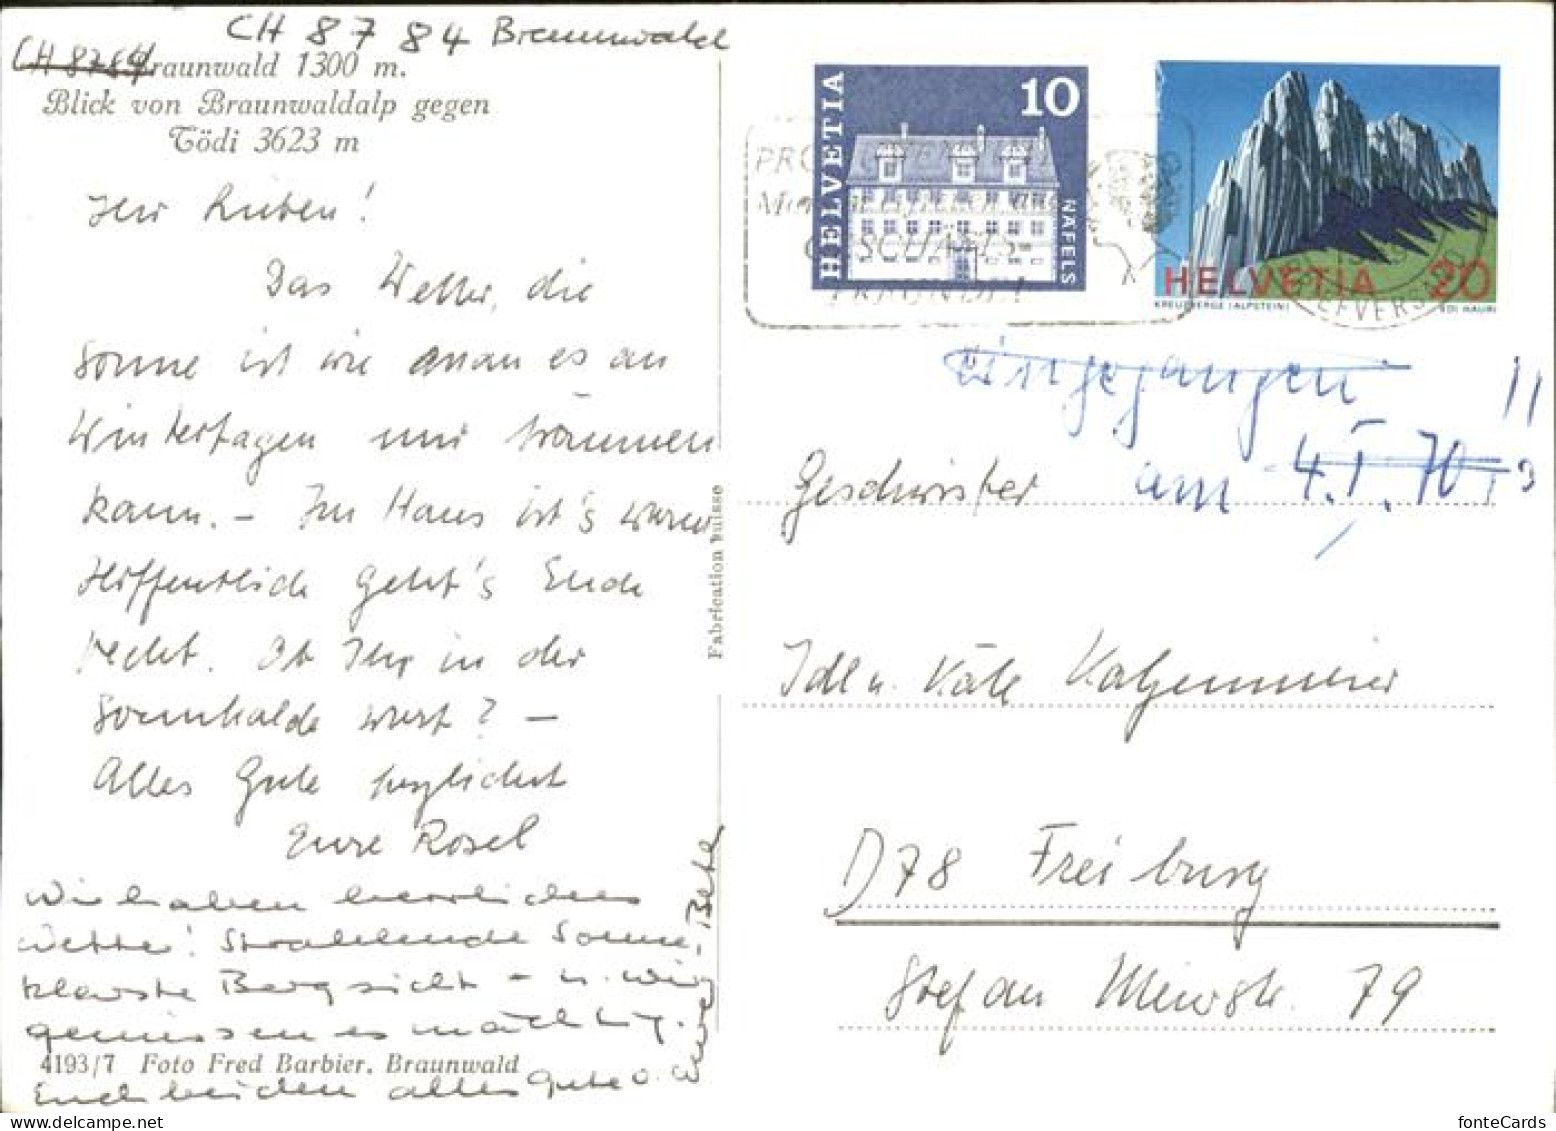 CH 8784 Braunwald
CH 8784
Braunwald 1300 m.
Blick von Braunwaldalp gegen
Tödi 3623 m
Ihr Lieben!
Das Wetter, die
Sonne ist wie man es an
Wintertagen nur träumen
kann. – Im Haus ist's warm
Hoffentlich geht's Euch
recht. Ob Ihr in der
Sonnhalde wart? –
Alles Gute herzlichst
Eure Rosel
Wir haben herrliches
Wetter! Strahlende Sonne,
klarste Bergsicht – u. wir
geniessen es mächtig.
4193/7 Foto Fred Barbier, Braunwald
Euch beiden alles Gute
Bete
Fabrication suisse
HELVETIA
10
NÄFELS
HELVETIA 20
KREUZBERGE (ALPSTEIN)
EDI HAURI
PRO
GESCHÄFTS-
eingegangen
am 4.I.70
Geschwister
Idl u. Käte Katzenmeier
D 78 Freiburg
Stefan Meierstr. 79
fonteCards